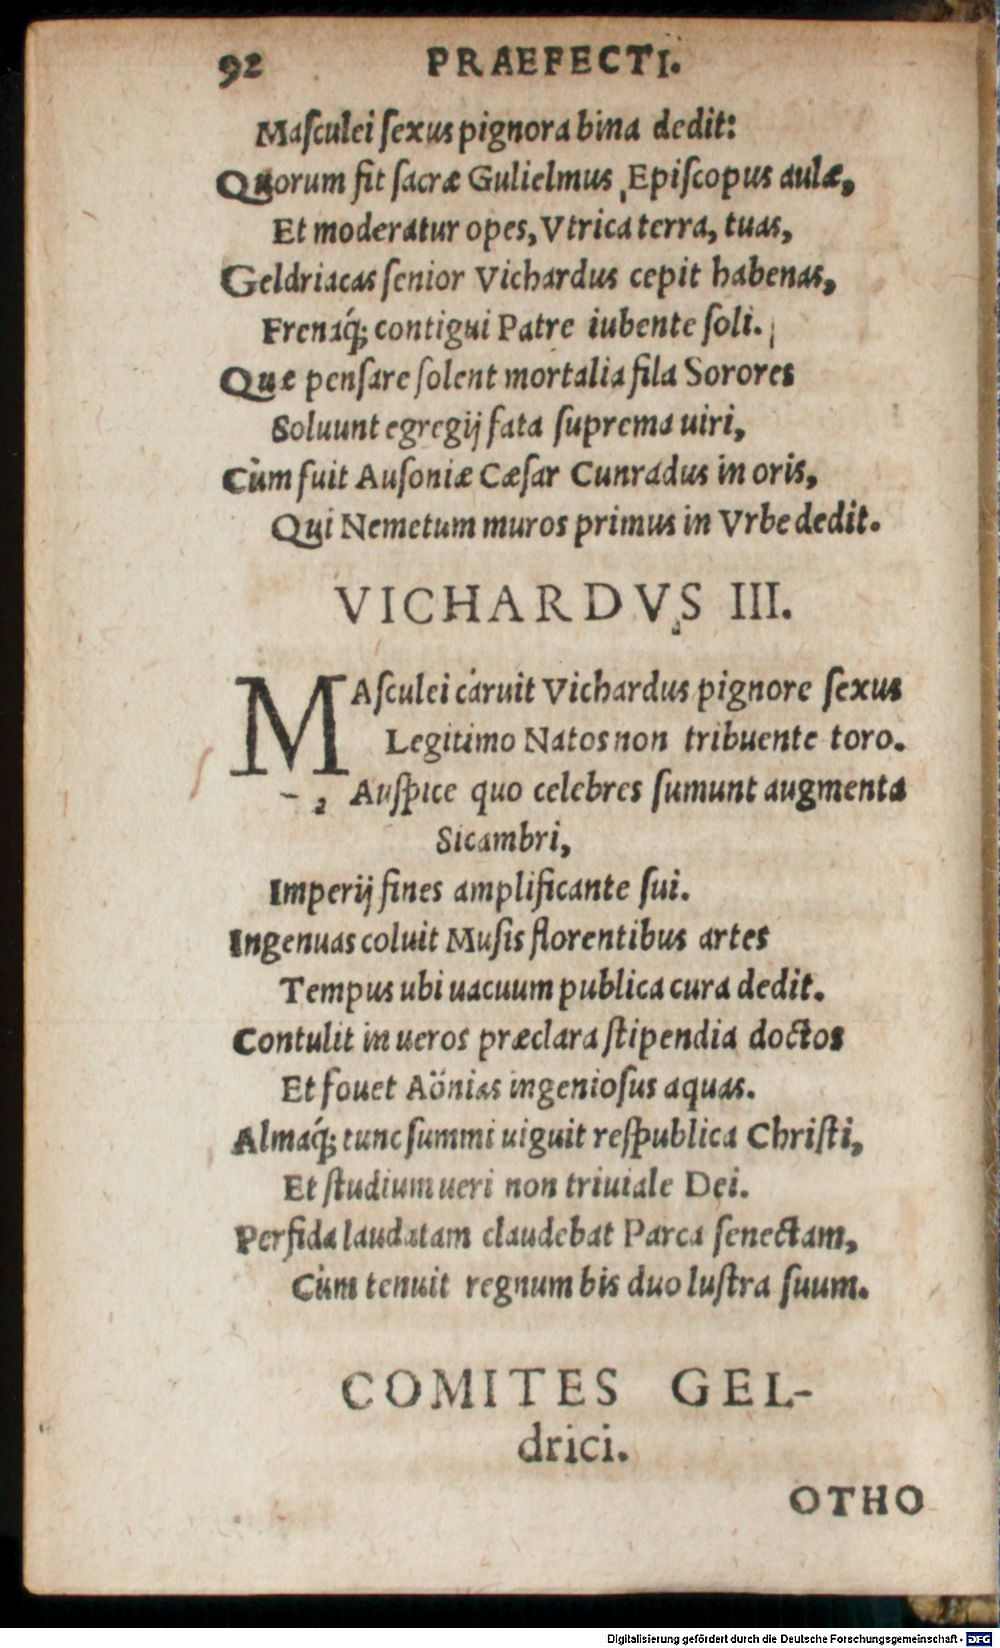 92 PRAEFECTI.
Maſculei ſexus pignora bina dedit:
Quorum fit ſacræ Gulielmus Epiſcopus aulæ,
Et moderatur opes, Vtrica terra, tuas,
Geldriacas ſenior Vichardus cepit habenas,
Frenaq́; contigui Patre iubente ſoli.
Quæ penſare ſolent mortalia fila Sorores
Soluunt egregij fata ſuprema uiri,
Cùm fuit Auſoniæ Cæſar Cunradus in oris,
Qui Nemetum muros primus in Vrbe dedit.
VICHARDVS III.
MAſculei caruit Vichardus pignore ſexus
Legitimo Natos non tribuente toro.
Auſpice quo celebres ſumunt augmenta
Sicambri,
Imperij fines amplificante ſui.
Ingenuas coluit Muſis florentibus artes
Tempus ubi uacuum publica cura dedit.
Contulit in ueros præclara ſtipendia doctos
Et fouet Aönias ingenioſus aquas.
Almaq́; tunc ſummi uiguit reſpublica Chriſti,
Et ſtudium ueri non triuiale Dei.
Perfida laudatam claudebat Parca ſenectam,
Cùm tenuit regnum bis duo luſtra ſuum.
COMITES GEL-
drici.
OTHO
Digitalisierung gefördert durch die Deutsche Forschungsgemeinschaft - DFG